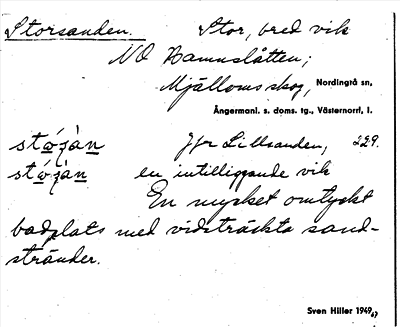 Storsanden. Stor, bred vik
NO Hamnslåtten;
Mjällomsskog, Nordingrå sn,
Ångermanl. s. doms. tg., Västernorrl. l.
Jfr Lillsanden, 229.
en intilliggande vik
En mycket omtyckt
badplats med vidsträckta sand-
stränder.
Sven Hiller 1949